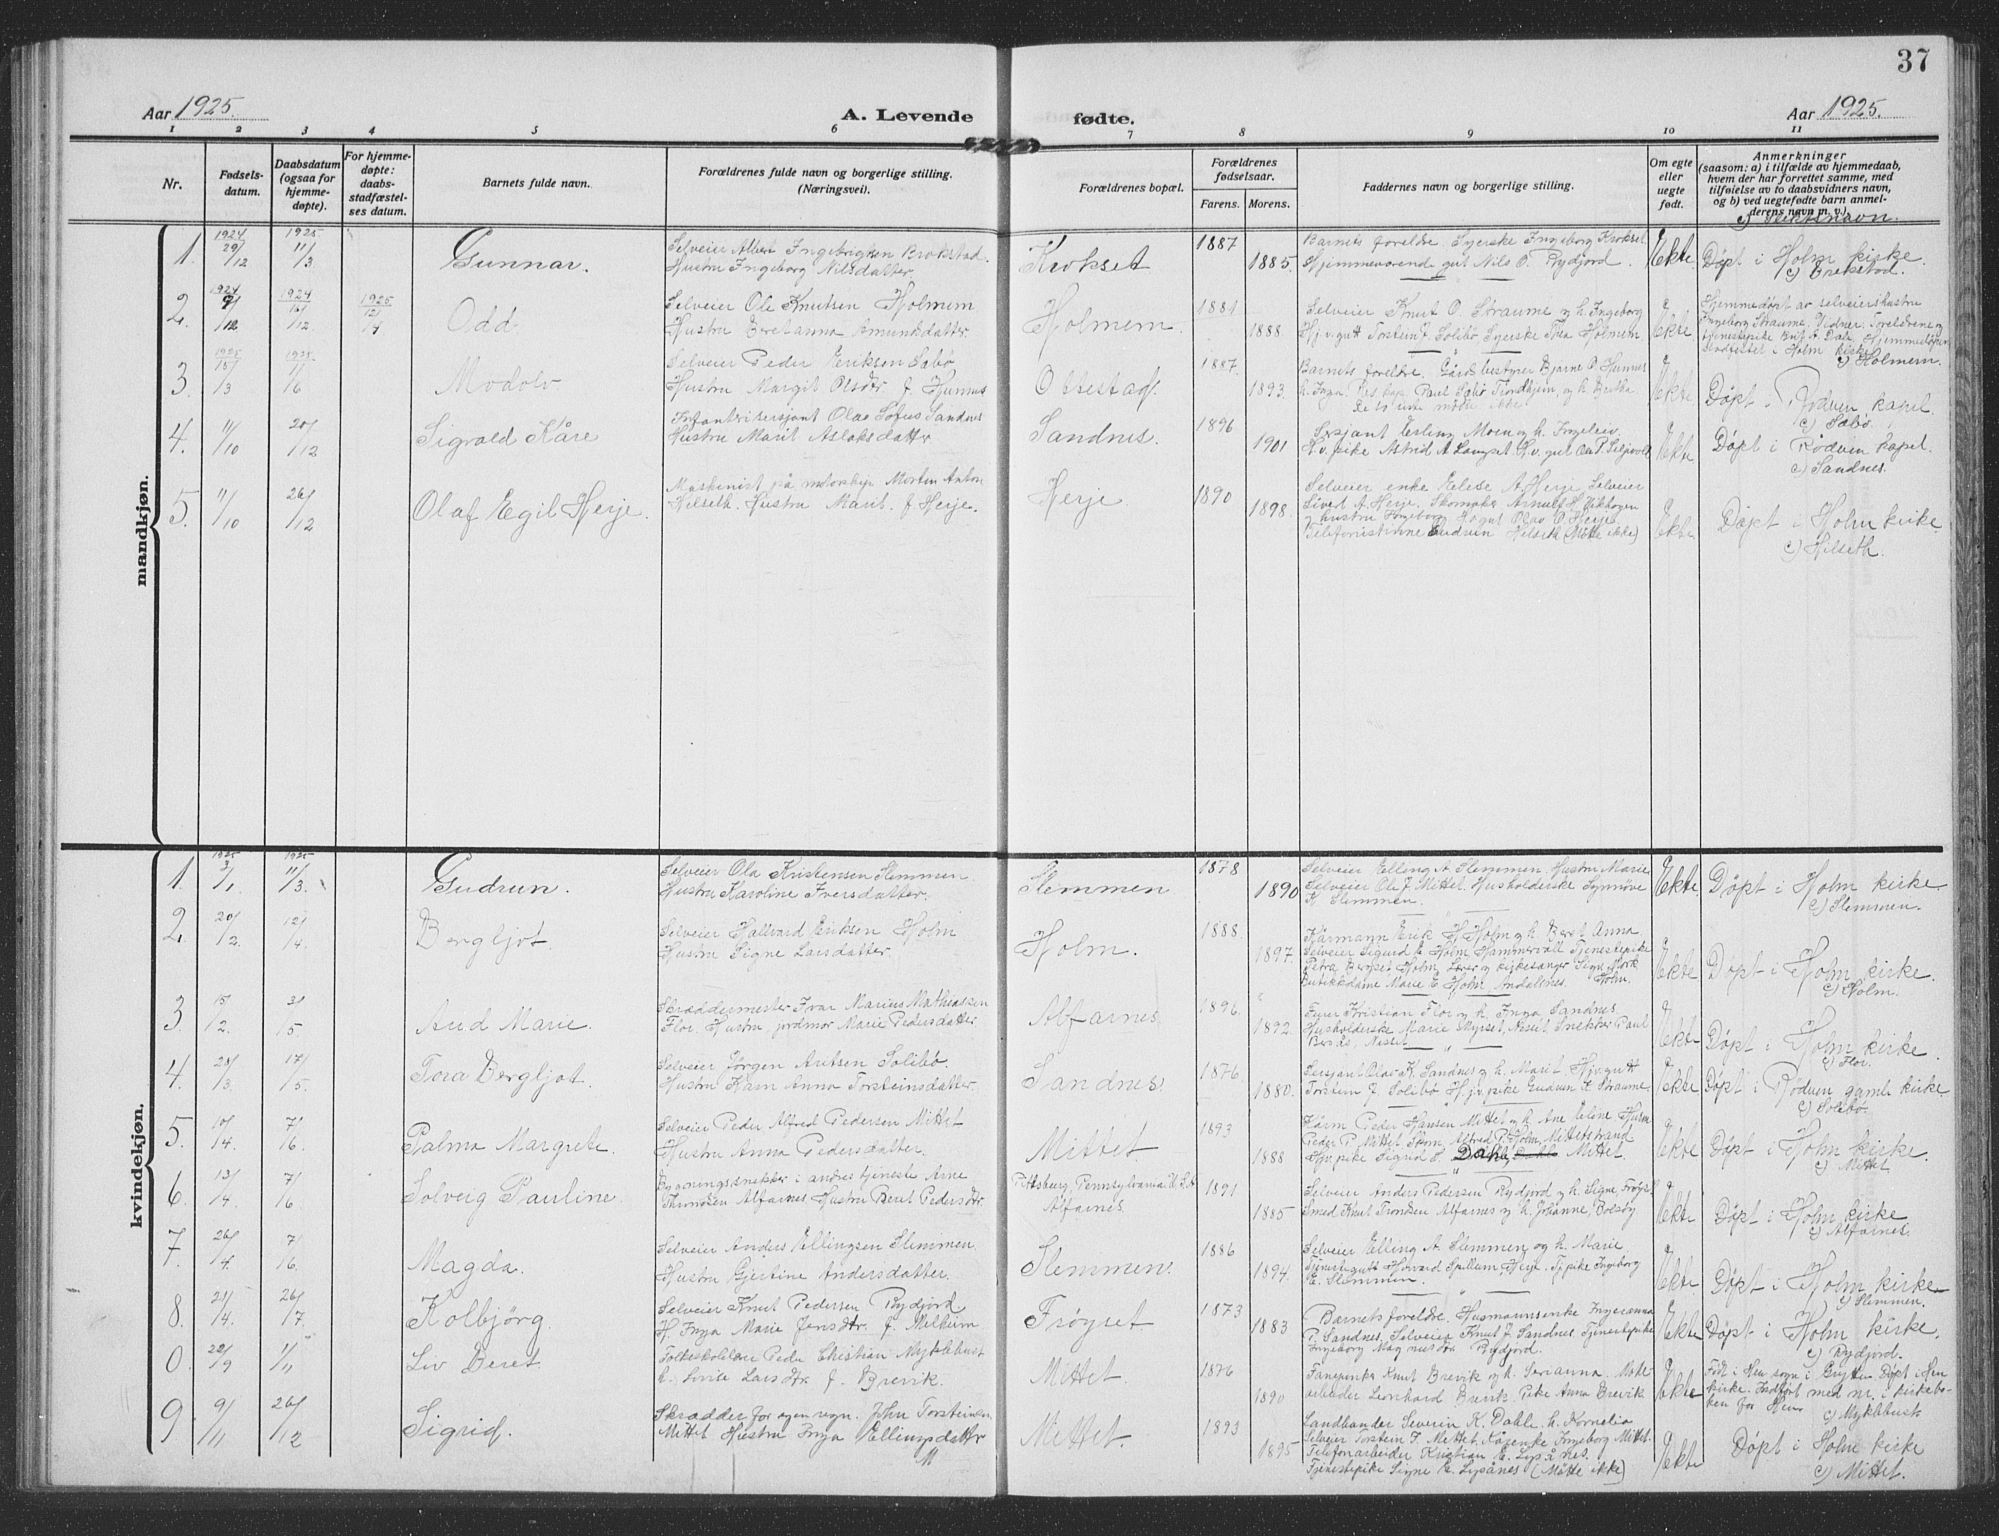 37
Aar 1925.
A. Levende fødte.
Aar 1925.
1 2 3 4 5 6 7 8 9 10 11
Nr.
Fødsels-
datum.
Daabsdatum
(ogsaa for
hjemme-
døpte).
For hjemme-
døpte:
daabs-
stadfæstel-
ses datum.
Barnets fulde navn.
Forældrenes fulde navn og borgerlige stilling.
(Næringsvei).
Forældrenes bopæl.
Forældrenes
fødselsaar.
Farens. Morens.
Faddernes navn og borgerlige stilling.
Om egte
eller
uegte
født.
Anmerkninger
(saasom: a) i tilfælde av hjemmedaab,
hvem der har forrettet samme, med
tilføielse av to daabsvidners navn,
og b) ved uegtefødte barn anmel-
derens navn m. v.)
c) Slektsnavn.
mandkjøn.
1. 1924 29/12 1925 11/3 Gunnar.
Selveier Albert Ingebrigtsen Brokstad.
Hustru Ingeborg Nilsdatter.
Krokset 1887 1885.
Barnets forelde. Syerske Ingeborg Krokset.
Hjemmeværende gut Nils O. Rydjord.
Ekte Døpt i Holm kirke.
2. 1924 9/12 1924 /12 1925 12/4 Odd
Selveier Ole Knutsen Holmem
Hustru Beret anna Amundsdatter.
Holmem. 1881 1888.
Selveier Knut O. Straume og h. Ingeborg
Hj.v. gutt Torstein J. Solibø Syerske Thea Holmem
Ekte
Hjemmedøpt av selveierhustru
Ingeborg Straume. Vidner: Foreldrene og
tjenestepike
stadfestet i Holm kirke
c) Holmem.
3. 1925 15/3 1925 1/6 Modolv
Selveier Peder Eriksen Sæbø
Hustru Margit Olsdtr f. Hunnes
1887. 1893.
Barnets forelde. Gårdsbestyrer Bjarne O. Hunnes
h. Inga.
De to siste møtte ikke.
Ekte Døpt i Rødven kapel.
c) Sæbø.
4. 11/10 20/12 Sigvald Kåre
Infanterisersjant Olav Sofus Sandnes
Hustru Marit Aslaksdatter
Sandnes. 1896 1901
Sersjant Erling Moen og h. Ingeleiv.
Ekte Døpt i Rødven kapel.
c) Sandnes.
5. 11/10 26/12 Olaf Egil Herje.
Maskinist på motorskøyte Morten Anton
Hilseth. Hustru Marit f. Herje.
Herje 1890 1898.
Selveier enke Eelese A Herje. Selveier
Sivert A. Herje. Skomaker Arnulf H. Vikhagen
hustru Ingeborg. Hv.gut Olav O. Herje
Telefonistinne Gudrun Hilseth (Møtte ikke)
Ekte Døpt i Holm kirke
c) Hilseth.
kvindekjøn.
1. 1925 3/1 1925 11/3. Gudrun.
Selveier Ola Kristensen Slemmen.
Hustru Karoline Iversdatter.
Slemmen 1878 1890
Selveier Elling A. Slemmen. Hustru Marie
Selveier Ole J. Mittet. Husholderske Synnøve
K. Slemmen.
Ekte Døpt i Holm kirke.
c) Slemmen.
2. 20/2. 12/4. Bergljot.
Selveier Hallvard Eriksen Holm
Hustru Signe Larsdatter.
Holm. 1888. 1897.
Kårmann Erik H. Holm og h. Beret Anna
Selveier Sigurd E. Holm Hammervoll Tjenestepike
Petra Bergset, Holm, Lærer og kirkesanger Sigv. Mork
Butikkdame Marie E. Holm Åndalsnes. Holm.
Ekte Døpt i Holm kirke.
c) Holm.
3. 15/2. 3/5. Aud Marie.
Skræddermester Ivar Marius Mathiassen
Flor. Hustru jordmor Marie Pedersdatter.
Alfarnes. 1896. 1892.
Furer Kristian Flor og h. Inga Sandnes.
Husholderske Marie Myrset, Nesset Snekker Paul
Ekte Døpt i Holm kirke.
c) Flor.
4. 28/3. 17/5. Tora Bergljot.
Selveier Jørgen Antsen Solibø
Hustru Karn Anna Torsteinsdatter.
Sandnes 1876 1880.
Sersjant Olav K. Sandnes og h. Marit Hjv.gutt
Torstein J. Solibø Hj.v.pike Gudrun K. Straume.
Ekte Døpt i Rødven gamle kirke
c) Solibø.
5. 10/4. 7/6. Palma Margrete
Selveier Peder Alfred Pedersen Mittet
Hustru Anna Pedersdatter.
Mittet 1893 1888
Kårm. Peder Hansen Mittet og h. Ane Eline Husm.
Peder P. Mittet Skom. Alfred P. Holm, Mittetstrand
Hjv.pike Sigrid S. Dahle, Mittet.
Ekte Døpt i Holm kirke
c) Mittet
6. 13/4. 7/6. Solveig Pauline.
Bygningssnekker i andres tjeneste Arne
Throndsen Alfarnes Hustru Berit Pedersdtr.
Pittsburg, Pennsylvania U.S.A.
Alfarnes. 1891 1885.
Selveier Anders Pedersen Rydjord og h. Signe, Frøys.
Smed Knut Trondsen Alfarnes og h. Johanne, Bolsøy
Ekte Døpt i Holm kirke
c) Alfarnes.
7. 26/4. 7/6. Magda.
Selveier Anders Ellingsen Slemmen.
Hustru Gjertine Andersdatter.
Slemmen. 1886 1894.
Selveier Elling A. Slemmen og h. Marie
Tjenergutt Håvard Spillum, Herje. Tj.pike Ingeborg
E. Slemmen.
Ekte Døpt i Holm kirke
c) Slemmen.
8. 21/4. 26/7. Kolbjørg.
Selveier Knut Pedersen Rydjord
H. Inga Marie Jensdtr. f. Melkum
Frøyset 1873 1883
Barnets forelde. Husmannsenke Ingeranna
P. Sandnes, Selveier Knut J. Sandnes Tjenestepike
Ingeborg Magnusdtr Rydjord.
Ekte Døpt i Holm kirke.
c) Rydjord.
0. 22/9 1/11 Liv Beret
Folkeskolelærer Peder Christian Myklebust
h. Lovise Larsdtr. f. Brevik.
Mittet. 1876 1890
Fanejunker Knut Brevik og h. Serianna. Møbel-
arbeider Leonhard Brevik Pike Anna Brevik
Ekte
Født i Hen sogn i Grytten Døpt i Hen
kirke. Indført med nr. i kirkebo-
ken for Hen
c) Myklebust
9. 9/11 26/12 Sigrid.
Skrædder for egen regn. John Torsteinsen
Mittet Hustru Inga Ellingsdatter
Mittet. 1893 1895
Landhandler Severin K. Dahle. h. Kornelia
Selveier Torstein J. Mittet. Kårenke Ingeborg Mittet.
Telefonarbeider Kristian E. Lysånes.
Tjenestepike Signe E. Lysånes (Møtte ikke)
Ekte Døpt i Holm kirke
c) Mittet.